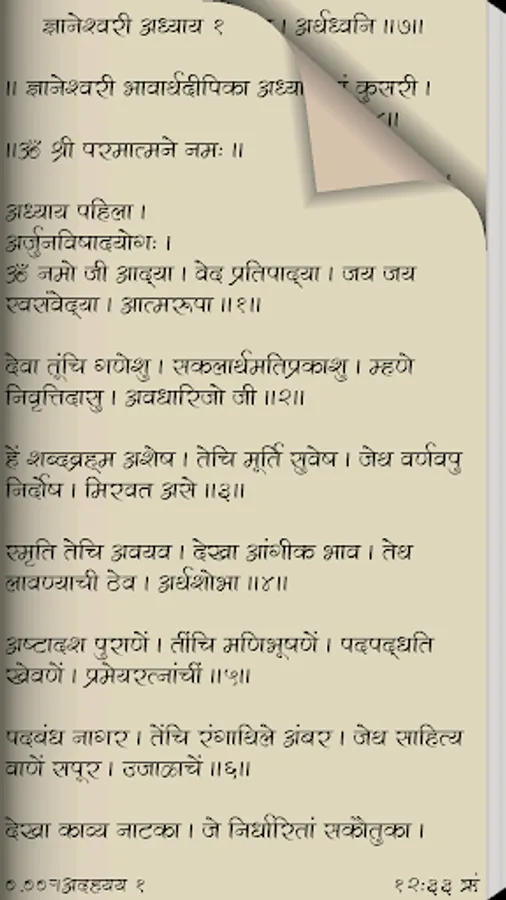 ज्ञानेश्वरी अध्याय १ । अर्थध्वनि ॥७॥
॥ ज्ञानेश्वरी भावार्थदीपिका अध्या कुसरी ।
॥
॥ॐ श्री परमात्मने नमः ॥
अध्याय पहिला ।
अर्जुनविषादयोगः ।
ॐ नमो जी आद्या । वेद प्रतिपाद्या । जय जय
स्वसंवेद्या । आत्मरूपा ॥१॥
देवा तूंचि गणेशु । सकलार्थमतिप्रकाशु । म्हणे
निवृत्तिदासु । अवधारिजो जी ॥२॥
हें शब्दब्रह्म अशेष । तेचि मूर्ति सुवेष । जेथ वर्णवपु
निर्दोष । मिरवत असे ॥३॥
स्मृति तेचि अवयव । देखा आंगीक भाव । तेथ
लावण्याची ठेव । अर्थशोभा ॥४॥
अष्टादश पुराणें । तींचि मणिभूषणें । पदपद्धति
खेवणें । प्रमेयरत्नांचीं ॥५॥
पदबंध नागर । तेंचि रंगाथिले अंबर । जेथ साहित्य
वाणें सपूर । उजाळाचें ॥६॥
देखा काव्य नाटका । जे निर्धारितां सकौतुका ।
१२:३३